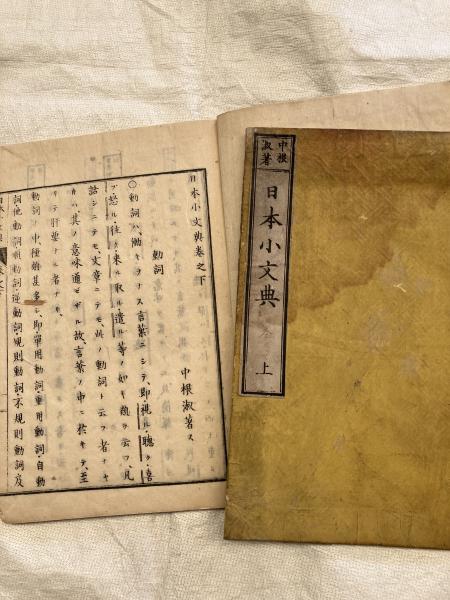 中根
淑著
日本小文典
上
日本小文典卷之下
中根淑著ス
動詞
〇動詞ハ、働キヲナス言葉ニシテ、即視ル、聽ク、喜
ブ、怒ル、往ク、來ル、取ル、遣ル等ノ如キ類ヲ云フ、凡
話シニテモ、文章ニテモ、此ノ動詞ト云フ者ナケ
其ノ意味通ゼザル故、言葉ノ中ニ於キテ、至
リテ肝要ナル者ナリ、
動詞ノ中、種類甚多シ、即單用動詞、重用動詞、自動
詞、他動詞、順動詞、逆動詞、規則動詞、不規則動詞、及